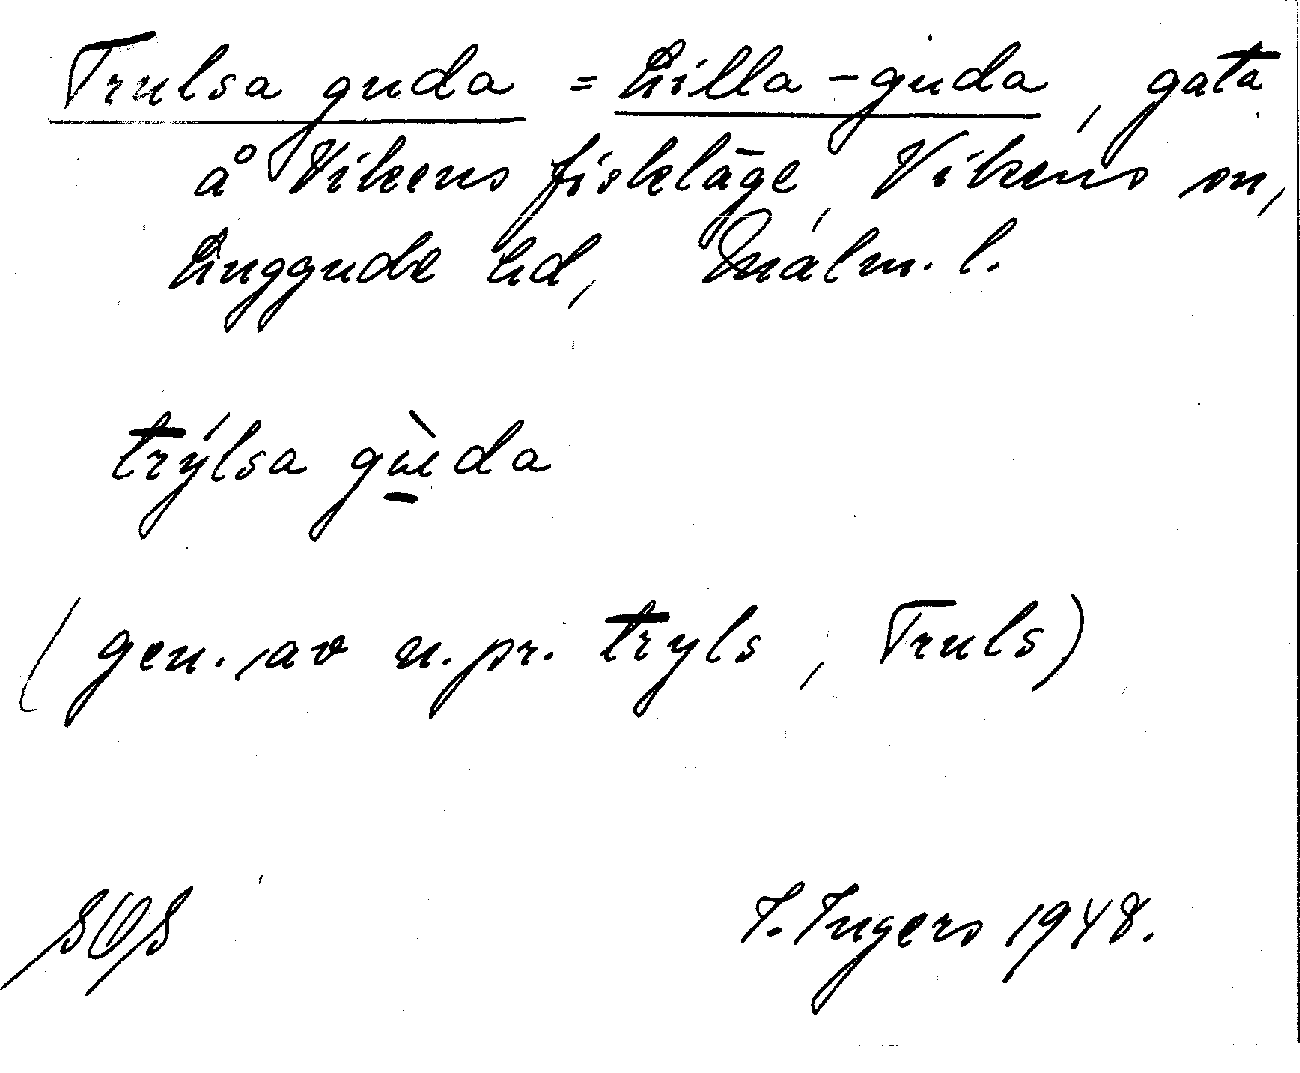 Trulsa guda = Lilla-guda, gata
å Vikens fiskläge, Vikens sn,
Luggude hd, Malm. l.
trýlsa gù̱da
(gen. av n. pr. tryls, Truls)
SOS I. Ingers 1948.